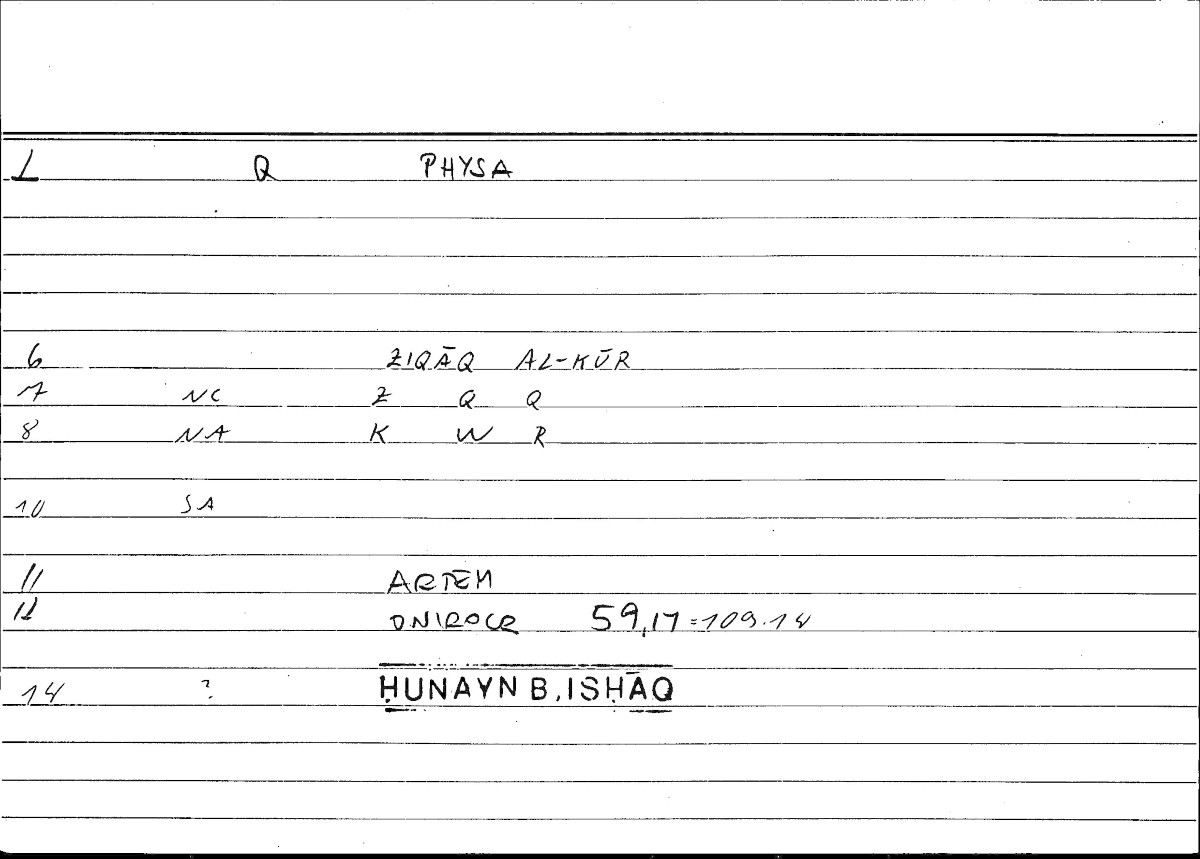 1 Q PHYSA
6 ZIQĀQ AL-KŪR
7 NC Z Q Q
8 NA K W R
10 SA
11 ARTEM
12 ONIROCR 59,17=109.14
14 ? ḤUNAYN B, ISḤĀQ